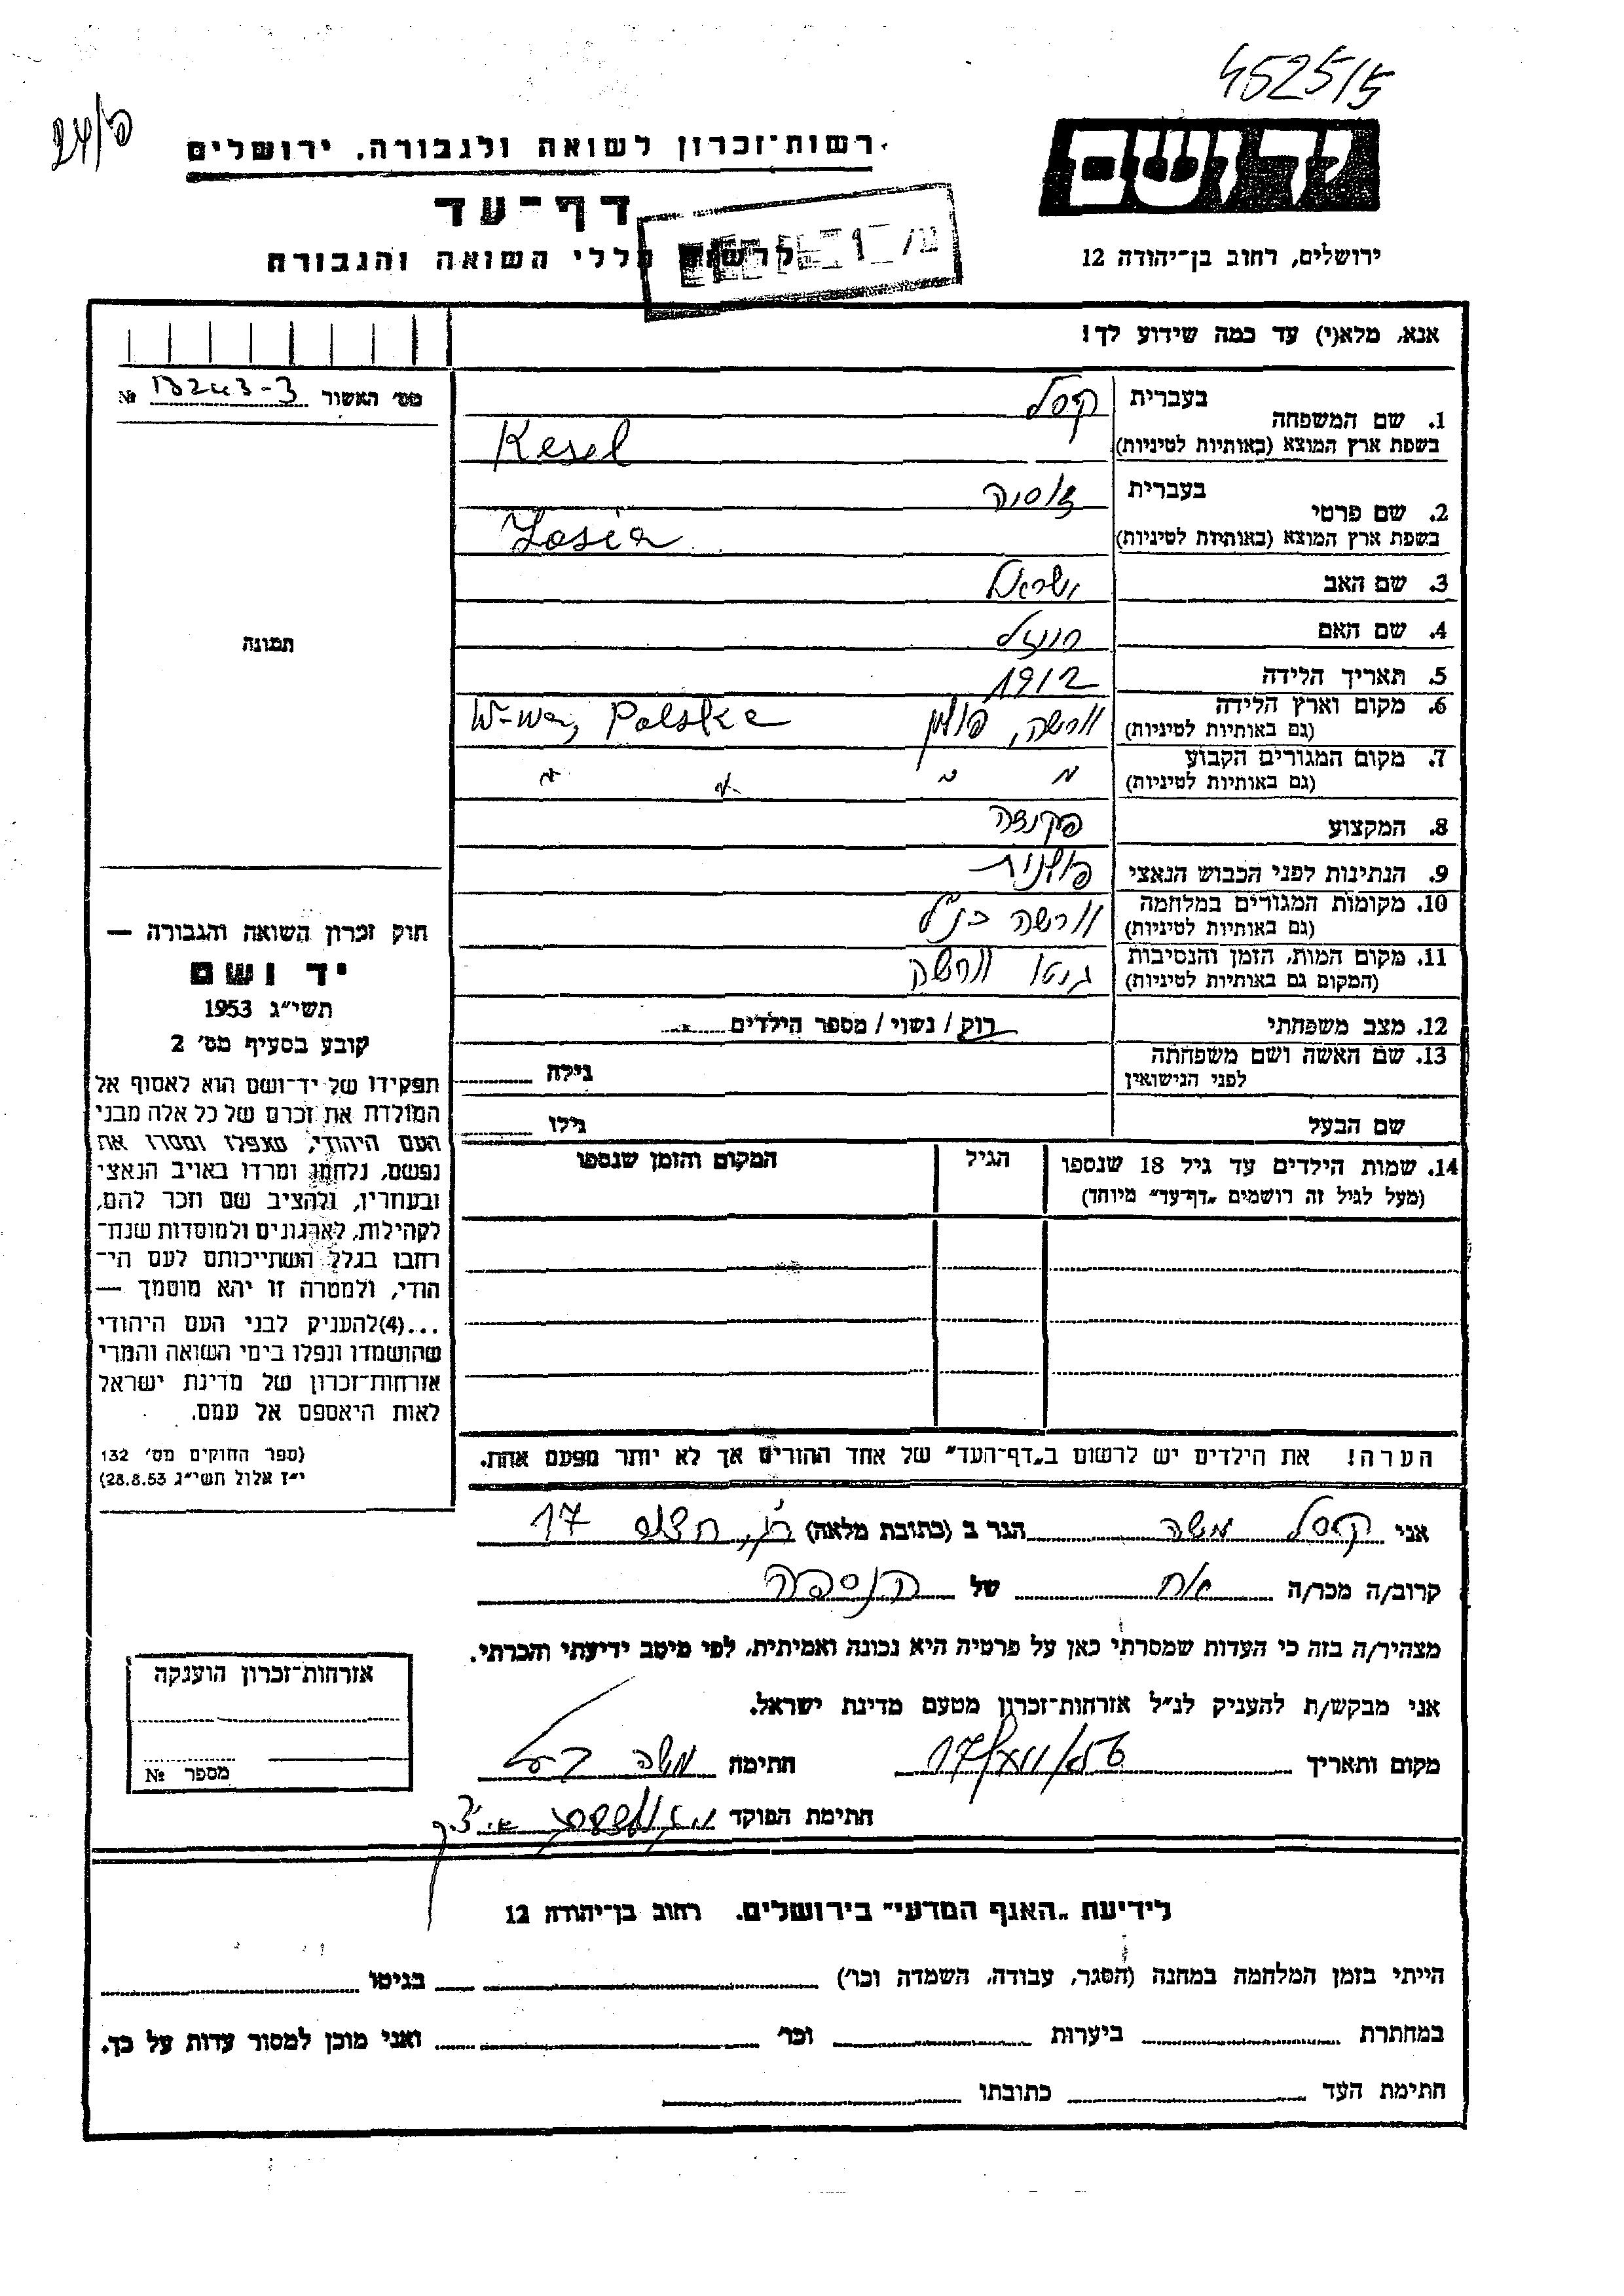 4525/5
רשות־זכרון לשואה ולגבורה, ירושלים
דף־עד
לרשום חללי השואה והגבורה
יד ושם
ירושלים, רחוב בן־יהודה 12
אנא, מלא(י) עד כמה שידוע לך!
מס׳ האשור № 13243-3
1. שם המשפחה בעברית קסל
בשפת ארץ המוצא (באותיות לטיניות) Kesel
2. שם פרטי בעברית זוסיה
בשפת ארץ המוצא (באותיות לטיניות) Zosia
3. שם האב ישראל
4. שם האם
5. תאריך הלידה 1912
6. מקום וארץ הלידה (גם באותיות לטיניות) וורשה, פולין W-wa, Polska
7. מקום המגורים הקבוע (גם באותיות לטיניות) " " " "
8. המקצוע פקידה
9. הנתינות לפני הכבוש הנאצי פולנית
10. מקומות המגורים במלחמה (גם באותיות לטיניות) וורשה כנ"ל
11. מקום המות, הזמן והנסיבות (המקום גם באותיות לטיניות) גיטו וורשה
12. מצב משפחתי רוק / נשוי / מספר הילדים
13. שם האשה ושם משפחתה לפני הנישואין גילה
שם הבעל גילו
14. שמות הילדים עד גיל 18 שנספו (מעל לגיל זה רושמים „דף־עד״ מיוחד)
הגיל
המקום והזמן שנספו
הערה! את הילדים יש לרשום ב„דף־העד״ של אחד ההורים אך לא יותר מפעם אחת.
תמונה
חוק זכרון השואה והגבורה —
יד ושם
תשי״ג 1953
קובע בסעיף מס׳ 2
תפקידו של יד־ושם הוא לאסוף אל
המולדת את זכרם של כל אלה מבני
העם היהודי, שנפלו ומסרו את
נפשם, נלחמו ומרדו באויב הנאצי
ובעוזריו, ולהציב שם וזכר להם,
לקהילות, לארגונים ולמוסדות שנח־
רבו בגלל השתייכותם לעם הי־
הודי, ולמטרה זו יהא מוסמך —
...(4) להעניק לבני העם היהודי
שהושמדו ונפלו בימי השואה והמרי
אזרחות־זכרון של מדינת ישראל
לאות היאספם אל עמם.
(ספר החוקים מס׳ 132
י״ז אלול תשי״ג 28.8.53)
אני קסל משה הגר ב (כתובת מלאה) 17
קרוב/ה מכר/ה אח של הנספה
מצהיר/ה בזה כי העדות שמסרתי כאן על פרטיה היא נכונה ואמיתית, לפי מיטב ידיעתי והכרתי.
אני מבקש/ת להעניק לנ״ל אזרחות־זכרון מטעם מדינת ישראל.
מקום ותאריך חתימה משה קסל
חתימת הפוקד
אזרחות־זכרון הוענקה
מספר №
לידיעת „האגף המדעי״ בירושלים. רחוב בן־יהודה 12
הייתי בזמן המלחמה במחנה (הסגר, עבודה, השמדה וכו׳) בגיטו
במחתרת ביערות וכו׳ ואני מוכן למסור עדות על כך.
חתימת העד כתובתו